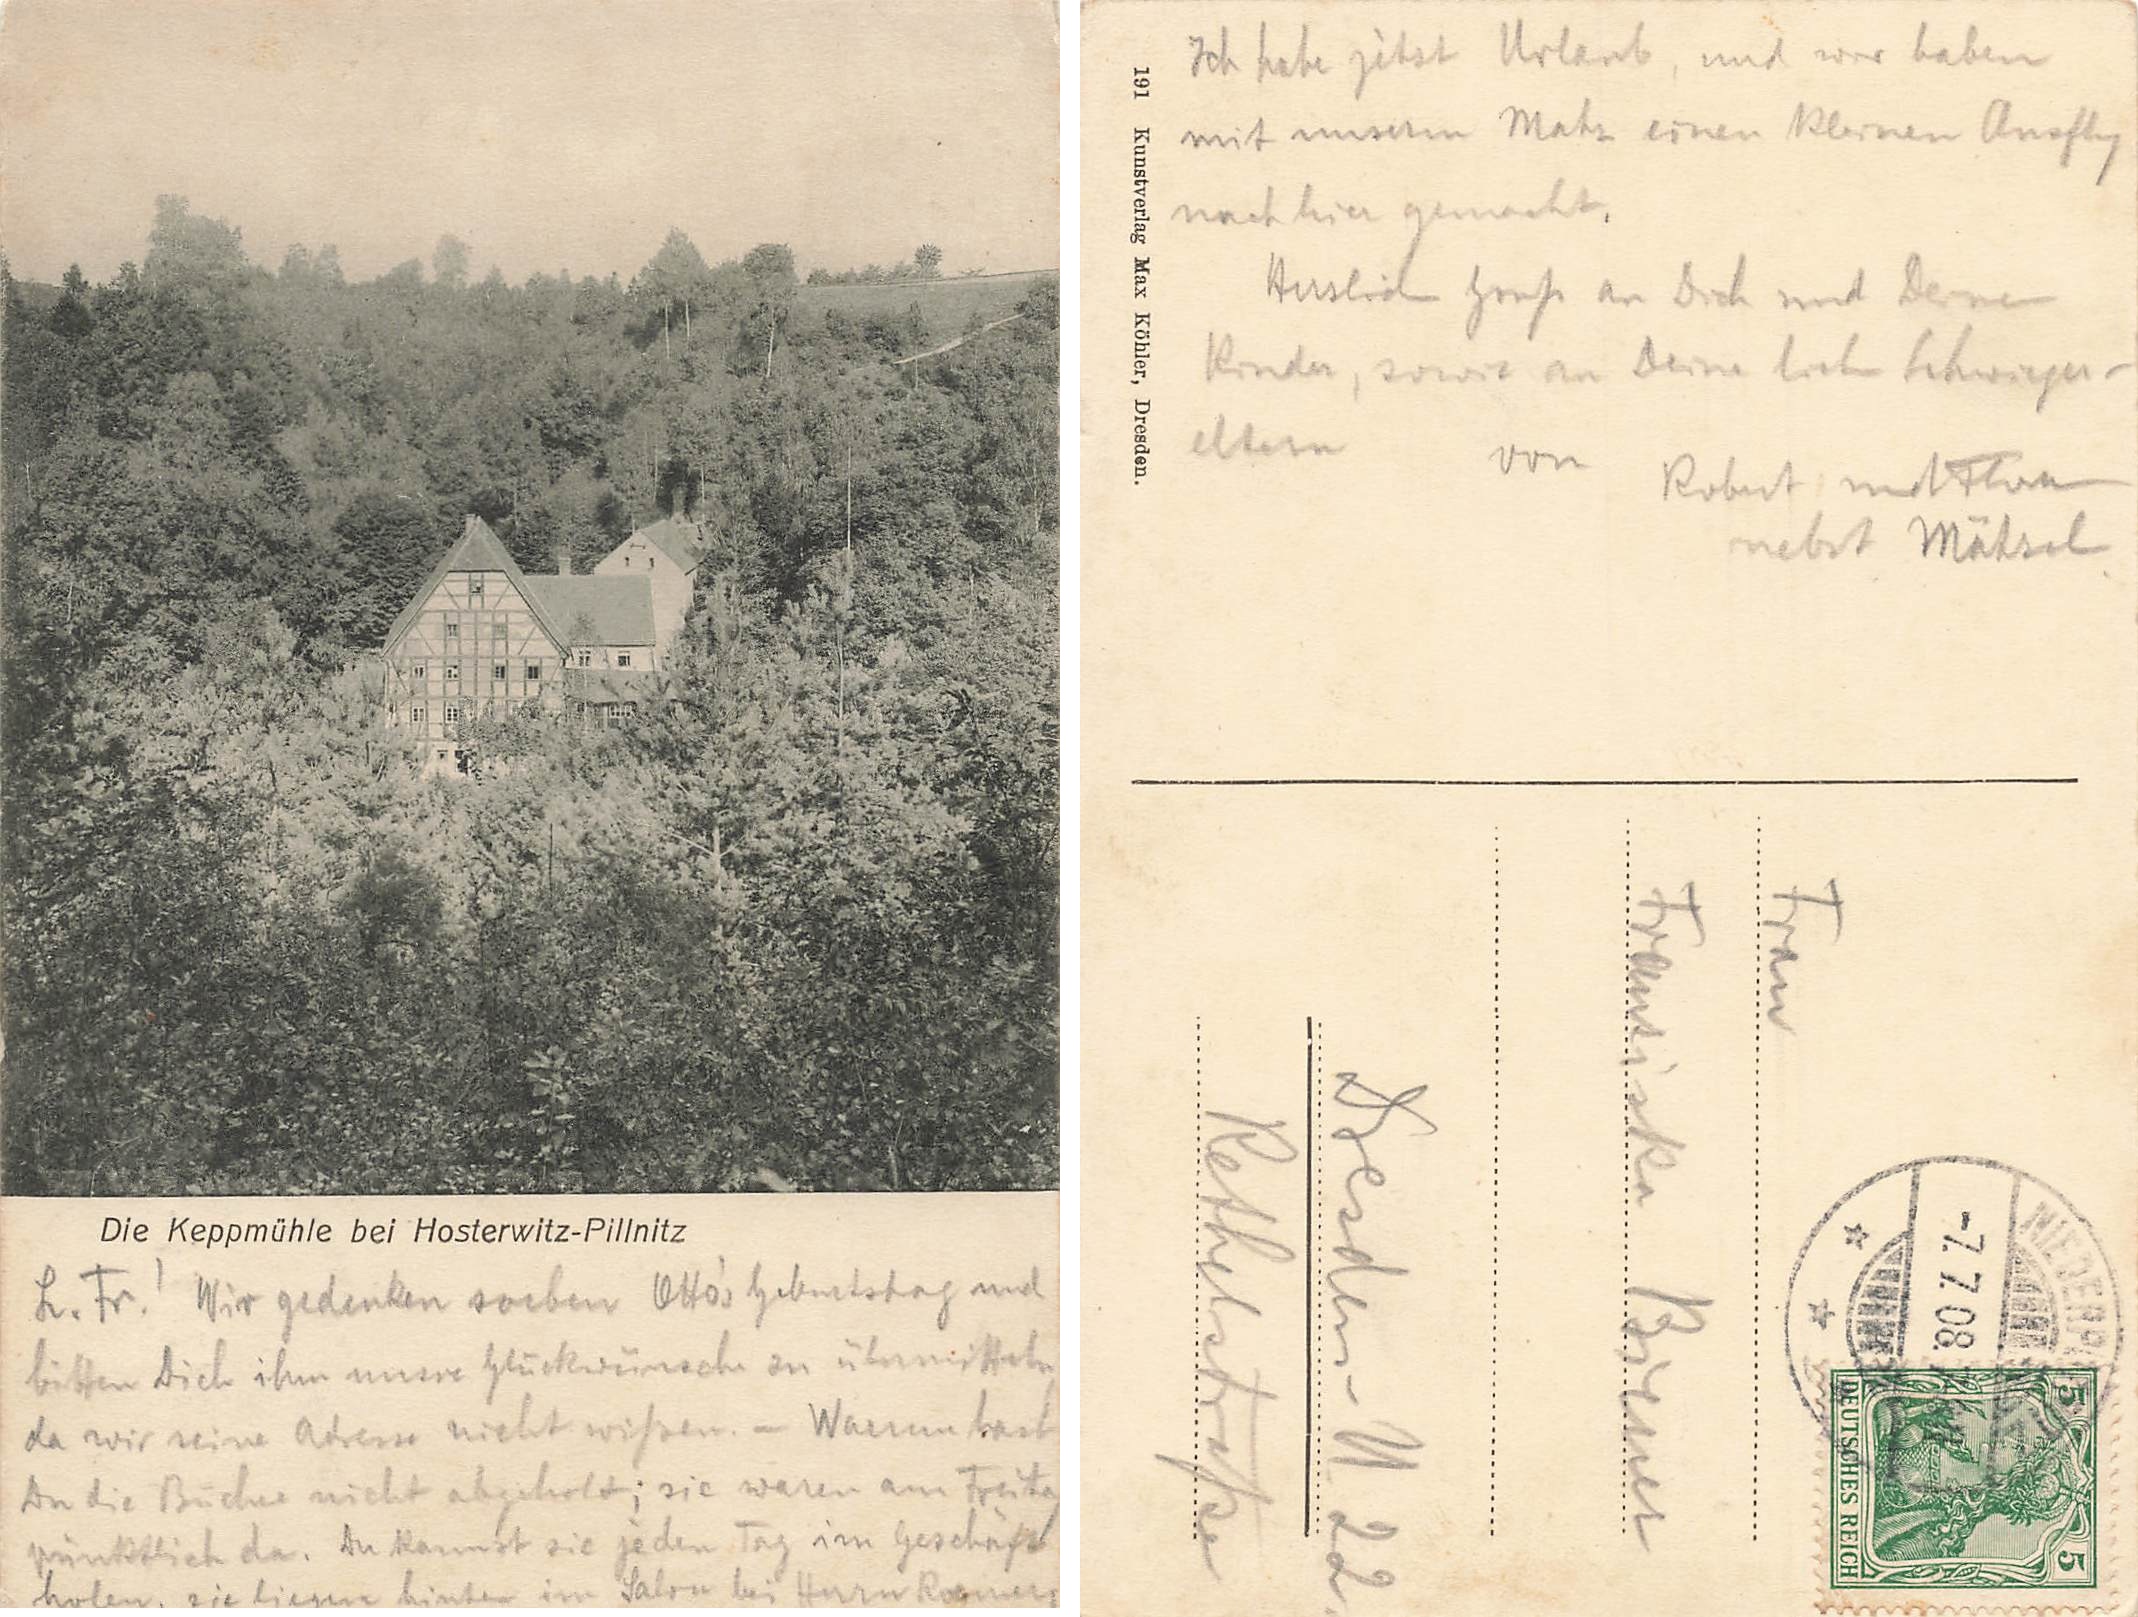 Die Keppmühle bei Hosterwitz-Pillnitz
L. Fr.! Wir gedenken soeben Otto's Geburtstag und
bitten Dich ihm unsre Glückwünsche zu übermitteln
da wir seine Adresse nicht wißen. — Warum hast
Du die Bücher nicht abgeholt; sie waren am Freitag
pünktlich da. Du kannst sie jeden Tag im Geschäft
holen, sie liegen hinten im Salon bei Herrn
191 Kunstverlag Max Köhler, Dresden.
Ich habe jetzt Urlaub, und wir haben
mit unserm Matz einen kleinen Ausflug
nach hier gemacht.
Herzlich Gruß an Dich und Deine
Kinder, sowie an Deine lieb Schwieger-
eltern von
Robert und Flora
nebst Mätzel
Frau
Franziska Biener
Dresden-N 22.
Rethelstraße
NIEDERP
-7.7.08.
5 5
DEUTSCHES REICH